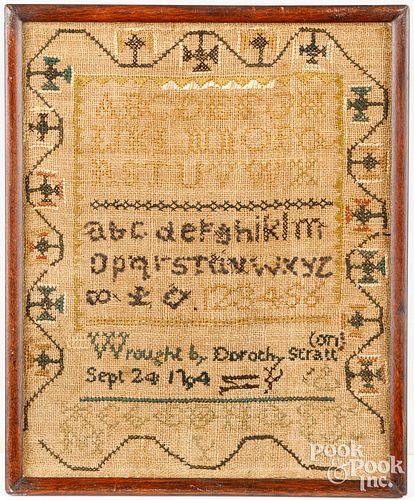 ABCDEFGH
IKLMNOPQ
RSTUVWX
abcdefghiklm
opqrstuvwxyz
& 123456
(on)
Wrought by Dorothy Stratt
Sept 24 1764
POOK
& POOK
Inc.